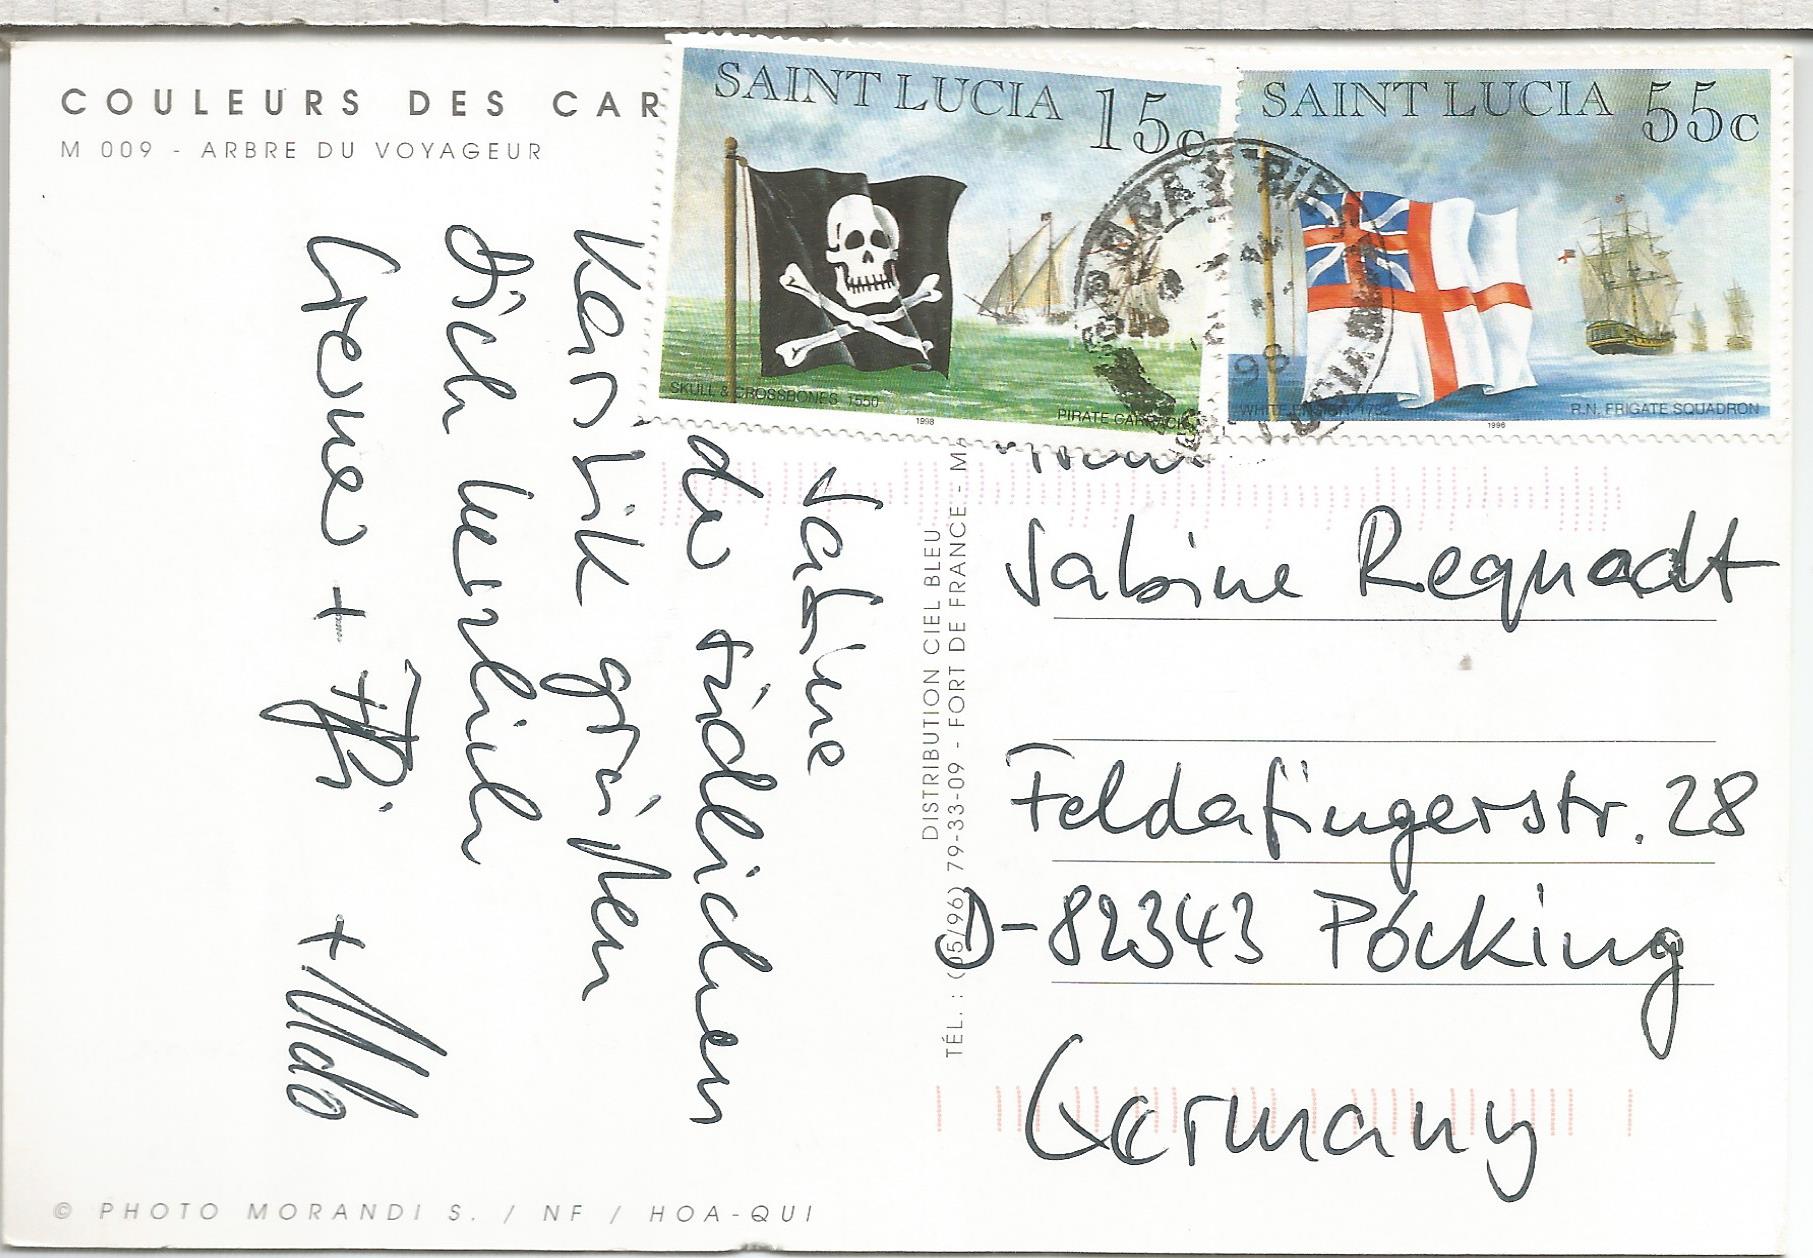 COULEURS DES CAR
M 009 - ARBRE DU VOYAGEUR
SAINT LUCIA 15c
SKULL & CROSSBONES 1550
PIRATE CARRACK
1998
SAINT LUCIA 55c
WHITE ENSIGN 1782
R.N. FRIGATE SQUADRON
1996
98
Sabine
der südlichen
Karibik grüßen
Dich herzlich
+
+
DISTRIBUTION CIEL BLEU
TÉL. : (05/96) 79-33-09 - FORT DE FRANCE - M
Sabine Requadt
Feldafingerstr. 28
D-82343 Pöcking
Germany
© PHOTO MORANDI S. / NF / HOA-QUI